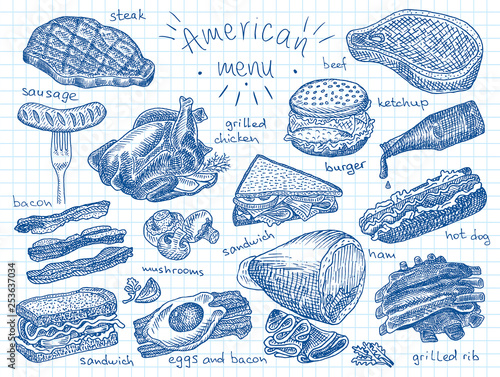 steak
American
menu
beef
sausage
ketchup
grilled
chicken
burger
bacon
sandwich
hot dog
mushrooms
ham
sandwich
eggs and bacon
grilled rib
Adobe Stock | #253637034